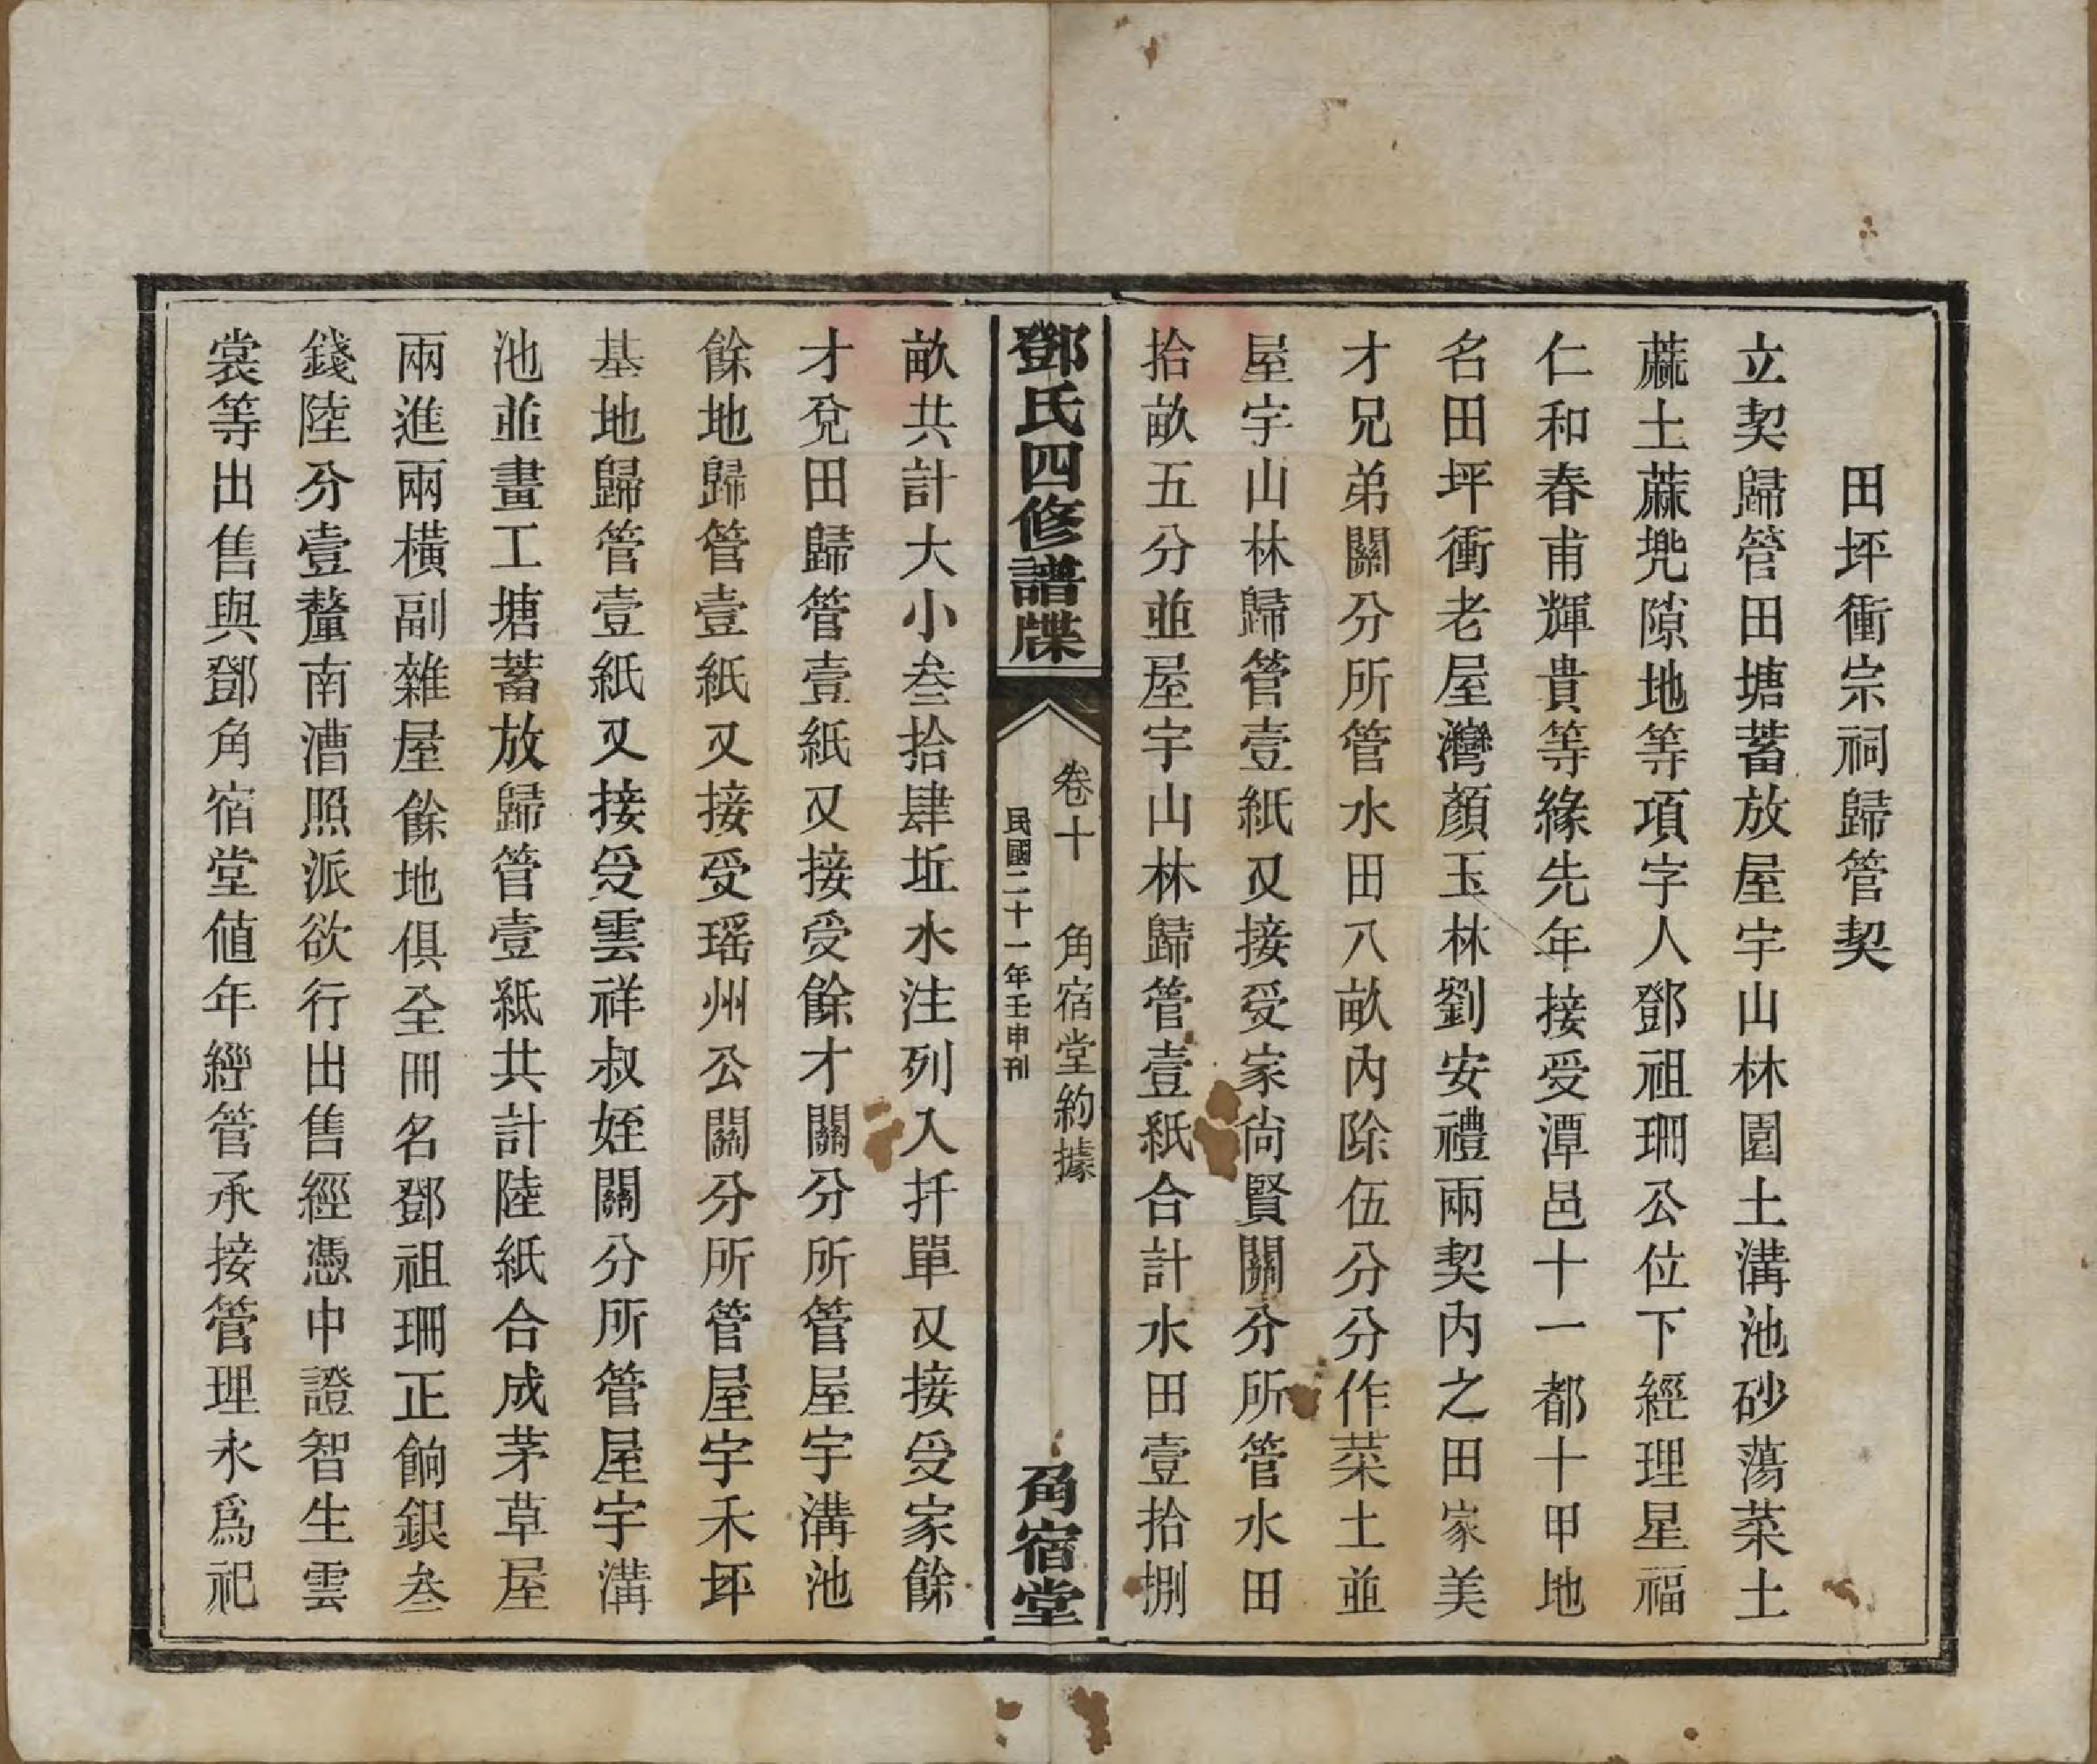 田坪衝宗祠歸管契
立契歸管田塘蓄放屋宇山林園土溝池砂蕩菜土
蔴土蔴兠隙地等項字人鄧祖珊公位下經理星福
仁和春甫輝貴等緣先年接受潭邑十一都十甲地
名田坪衝老屋灣顏玉林劉安禮兩契內之田家美
才兄弟關分所管水田八畝內除伍分分作菜土並
屋宇山林歸管壹紙又接受家尙賢關分所管水田
拾畝五分並屋宇山林歸管壹紙合計水田壹拾捌
鄧氏四修譜牒
卷十 角宿堂約據
民國二十一年壬申刊
角宿堂
畝共計大小叁拾肆坵水注列入扦單又接受家餘
才兌田歸管壹紙又接受餘才關分所管屋宇溝池
餘地歸管壹紙又接受瑶州公關分所管屋宇禾坪
基地歸管壹紙又接受雲祥叔姪關分所管屋宇溝
池並畫工塘蓄放歸管壹紙共計陸紙合成茅草屋
兩進兩橫副雜屋餘地俱全冊名鄧祖珊正餉銀叁
錢陸分壹釐南漕照派欲行出售經憑中證智生雲
裳等出售與鄧角宿堂値年經管承接管理永爲祀